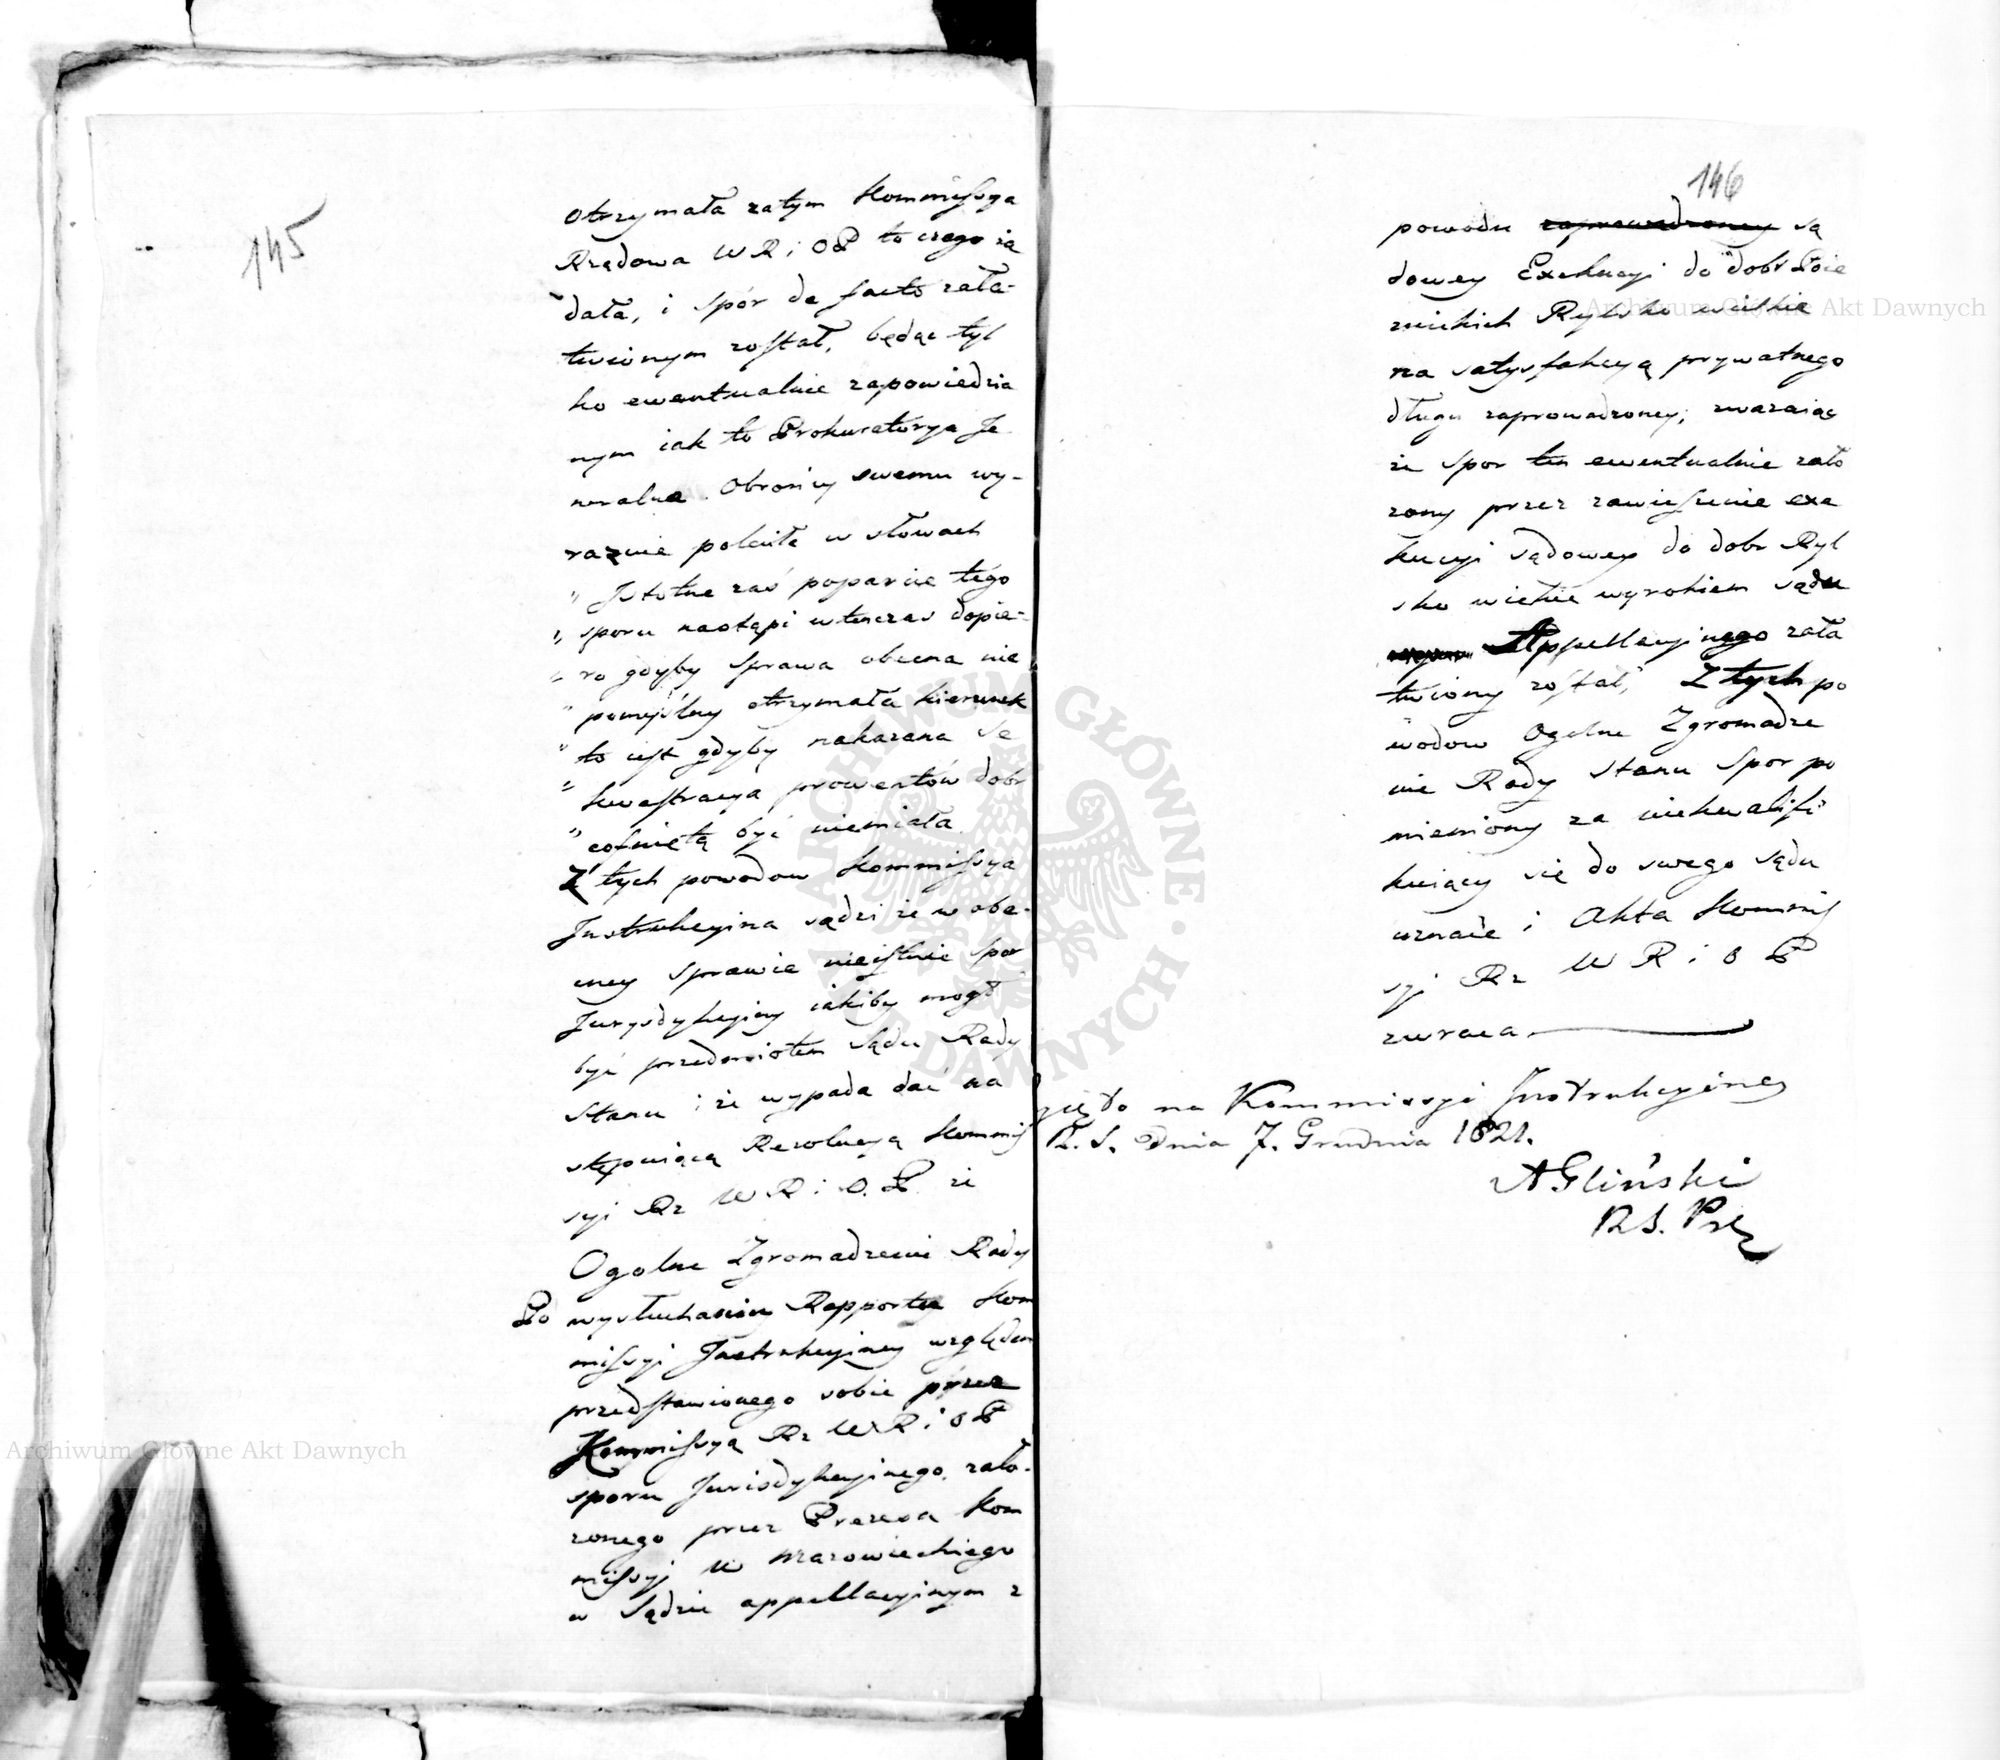 145
Otrzymała zatym Kommissya
Rządowa W R i O P to czego żą
dała, i spór de facto zała-
twionym został, będąc tyl
ko ewentualnie zapowiedzia
nym iak to Prokuratorya Je
neralna Obrońcy swemu wy-
raznie poleciła w słowach
" Istotne zaś poparcie tego
" sporu nastąpi wtenczas dopie-
" ro gdyby sprawa obecna nie
" pomyślny otrzymała kierunek
" to iest gdyby nakazana se
" kwestracya prowentów dobr
" cofniętą być niemiała
Z tych powodow Kommissya
Instrukcyina sądzi że w obe-
cney sprawie nieistnie spor
Jurysdykcyiny iakiby mogł
być przedmiotem Sądu Rady
Stanu i że wypada dać na
stępuiącą Rezolucyą Kommis
syi Rz W R i O. P. że
Ogolne Zgromadzenie Rady
Po wysłuchaniu Rapportu Kom
missyi Instrukcyiney względem
przedstawionego sobie przez
Kommissyą Rz W R i O P
sporu Jurisdykcyinego, zało-
żonego przez Prezesa Kom
missyi W Mazowieckiego
w Sądzie appellacyinym z
146
powodu zaprowadzoney są
dowey Exekucyi do dobr
Rylsko wielkie
na satysfakcyą prywatnego
długu zaprowadzoney; zwazaiąc
że spor ten ewentualnie zało
zony przez zawieszenie exe
kucyi sądowey do dobr Ryl
sko wielkie wyrokiem sądu
Appellacyjnego zała
twiony został, Z tych po
wodow Ogolne Zgromadze
nie Rady Stanu Spor po
mieniony za niekwalifi
kuiący się do swego sądu
uznaie i Akta Kommis
syi Rz W R i O P
zwraca
ięto na Kommissyi Instrukcyiney
R. S. dnia 7. Grudnia 1821.
A Gliński
R S. Prz
ARCHIWUM GŁÓWNE AKT DAWNYCH
Archiwum Główne Akt Dawnych
Archiwum Główne Akt Dawnych